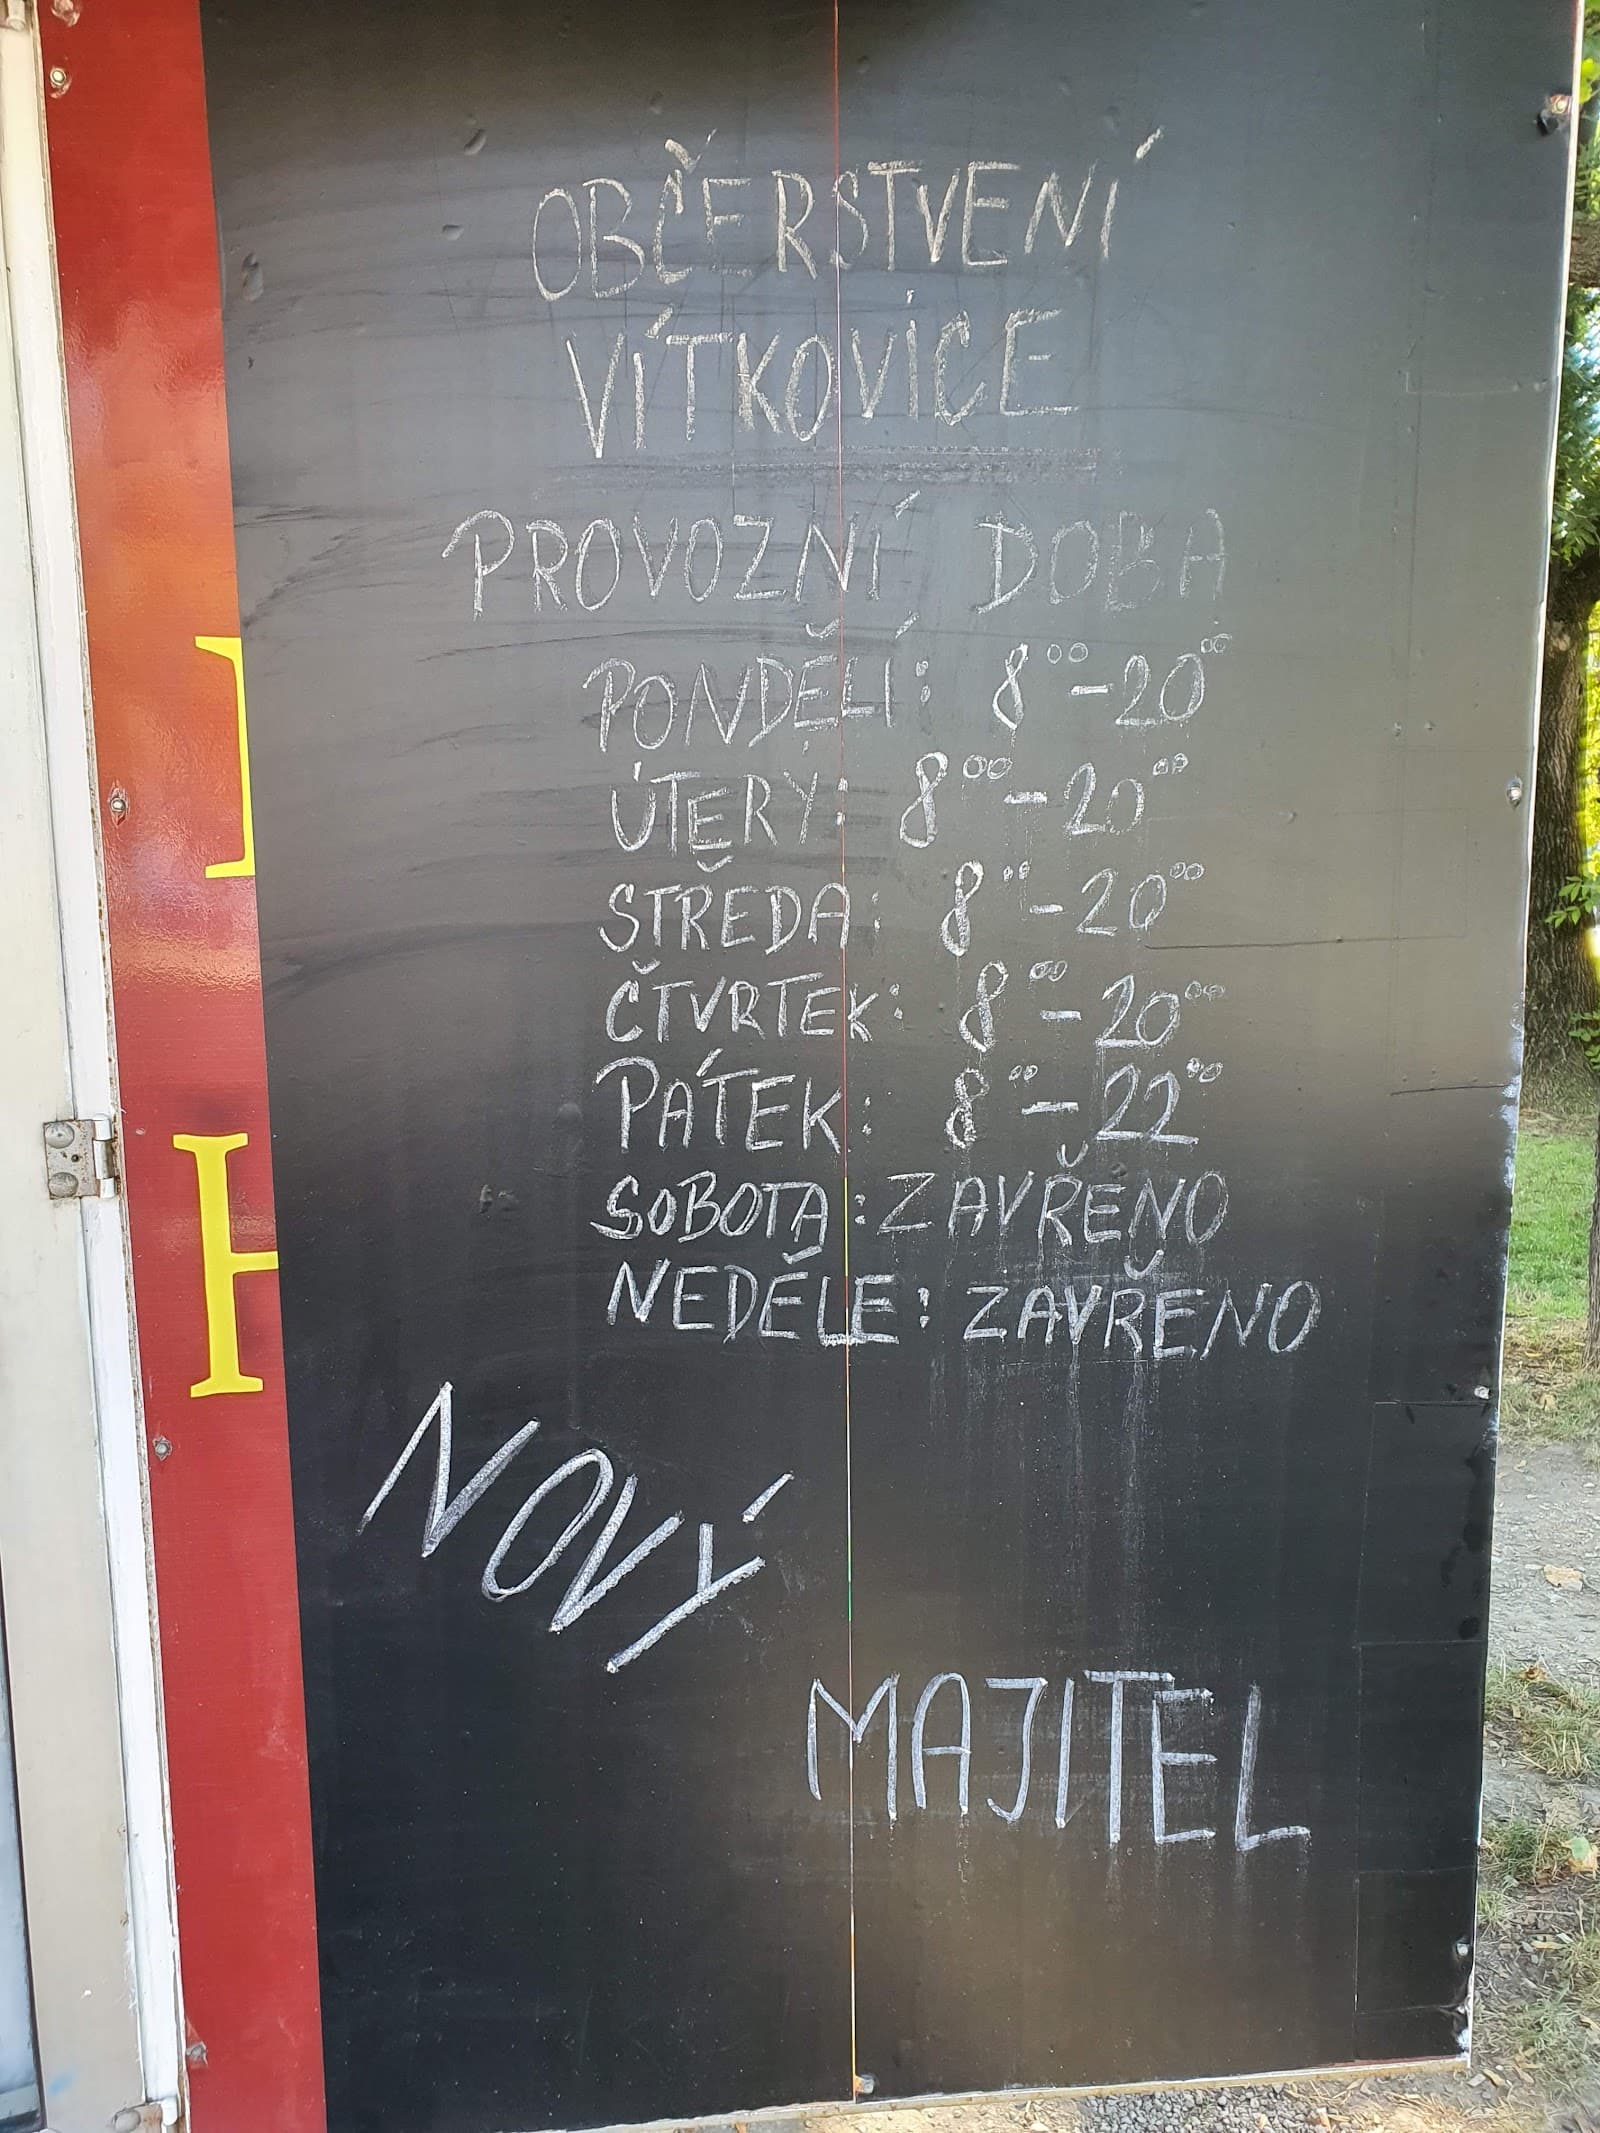 OBČERSTVENÍ
VÍTKOVICE
PROVOZNÍ DOBA
PONDĚLÍ: 8⁰⁰-20⁰⁰
ÚTERÝ: 8⁰⁰-20⁰⁰
STŘEDA: 8⁰⁰-20⁰⁰
ČTVRTEK: 8⁰⁰-20⁰⁰
PÁTEK: 8⁰⁰-22⁰⁰
SOBOTA: ZAVŘENO
NEDĚLE: ZAVŘENO
NOVÝ
MAJITEL